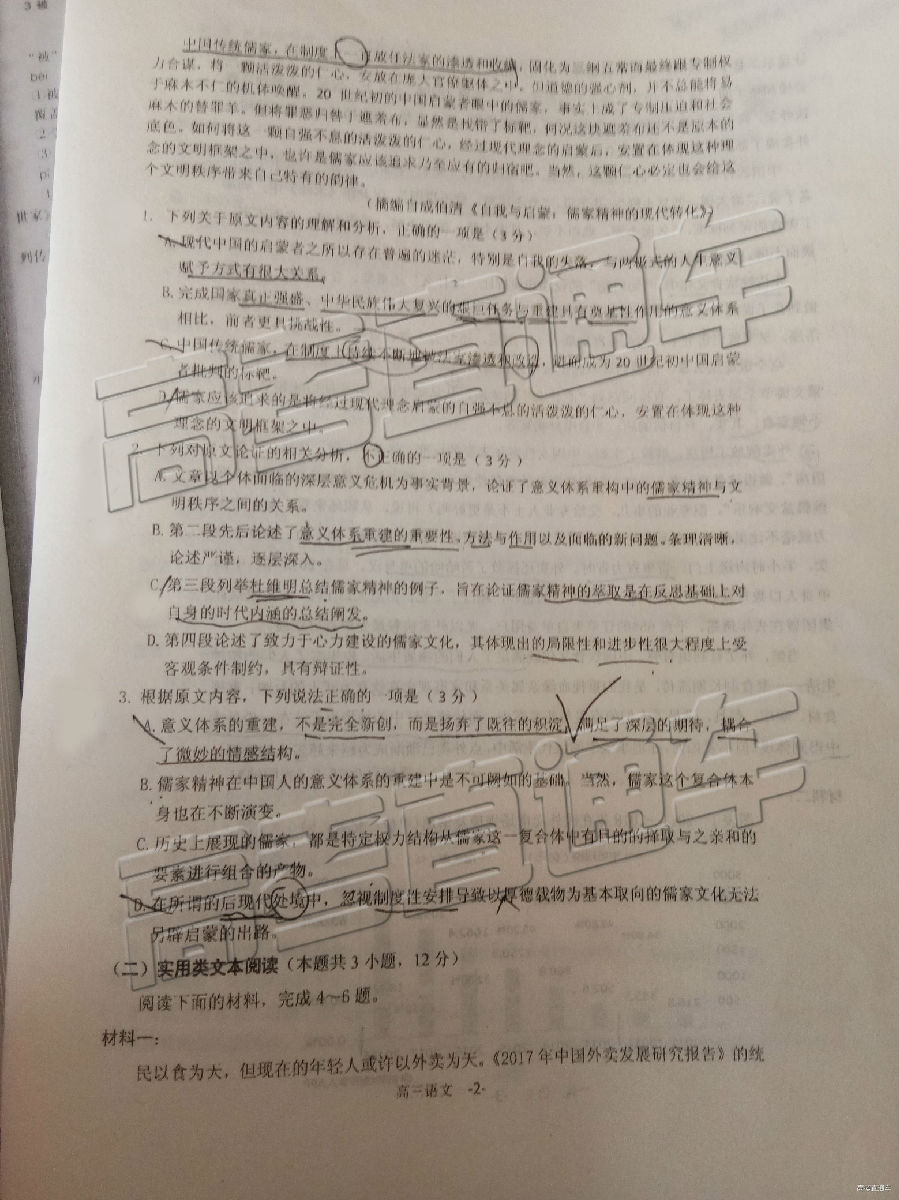 3 被
"被"
1 被
世家》
列传
中国传统儒家，在制度上一直放任法家的渗透和收编，固化为三纲五常而最终跟专制权
力合谋，将一颗活泼泼的仁心，安放在庞大官僚躯体之中。但道德的强心剂，并不总能将易
于麻木不仁的机体唤醒。20 世纪初的中国启蒙者眼中的儒家，事实上成了专制压迫和社会
麻木的替罪羊。但将罪恶归咎于遮羞布，显然是找错了标靶，何况这块遮羞布还不是原本的
底色。如何将这一颗自强不息的活泼泼的仁心，经过现代理念的启蒙后，安置在体现这种理
念的文明框架之中，也许是儒家应该追求乃至应有的归宿吧。当然，这颗仁心必定也会给这
个文明秩序带来自己特有的韵律。
（摘编自成伯清《自我与启蒙：儒家精神的现代转化》）
1. 下列关于原文内容的理解和分析，正确的一项是（3 分）
A. 现代中国的启蒙者之所以存在普遍的迷茫，特别是自我的失落，与两极式的人生意义
赋予方式有很大关系。
B. 完成国家真正强盛、中华民族伟大复兴的艰巨任务与重建具有奠基性作用的意义体系
相比，前者更具挑战性。
C. 中国传统儒家，在制度上持续不断地被法家渗透和改造，进而成为 20 世纪初中国启蒙
者批判的标靶。
D. 儒家应该追求的是将经过现代理念启蒙的自强不息的活泼泼的仁心，安置在体现这种
理念的文明框架之中。
2. 下列对原文论证的相关分析，不正确的一项是（3 分）
A. 文章以个体面临的深层意义危机为事实背景，论证了意义体系重构中的儒家精神与文
明秩序之间的关系。
B. 第二段先后论述了意义体系重建的重要性、方法与作用以及面临的新问题。条理清晰，
论述严谨，逐层深入。
C. 第三段列举杜维明总结儒家精神的例子，旨在论证儒家精神的萃取是在反思基础上对
自身的时代内涵的总结阐发。
D. 第四段论述了致力于心力建设的儒家文化，其体现出的局限性和进步性很大程度上受
客观条件制约，具有辩证性。
3. 根据原文内容，下列说法正确的一项是（3 分）
A. 意义体系的重建，不是完全新创，而是扬弃了既往的积淀，满足了深层的期待，耦合
了微妙的情感结构。
B. 儒家精神在中国人的意义体系的重建中是不可阙如的基础。当然，儒家这个复合体本
身也在不断演变。
C. 历史上展现的儒家，都是特定权力结构从儒家这一复合体中有目的的择取与之亲和的
要素进行组合的产物。
D. 在所谓的后现代处境中，忽视制度性安排导致以厚德载物为基本取向的儒家文化无法
另辟启蒙的出路。
（二）实用类文本阅读（本题共 3 小题，12 分）
阅读下面的材料，完成 4～6 题。
材料一：
民以食为天，但现在的年轻人或许以外卖为天。《2017 年中国外卖发展研究报告》的统
高三语文 -2-
高考直通车
高考直通车
高考直通车